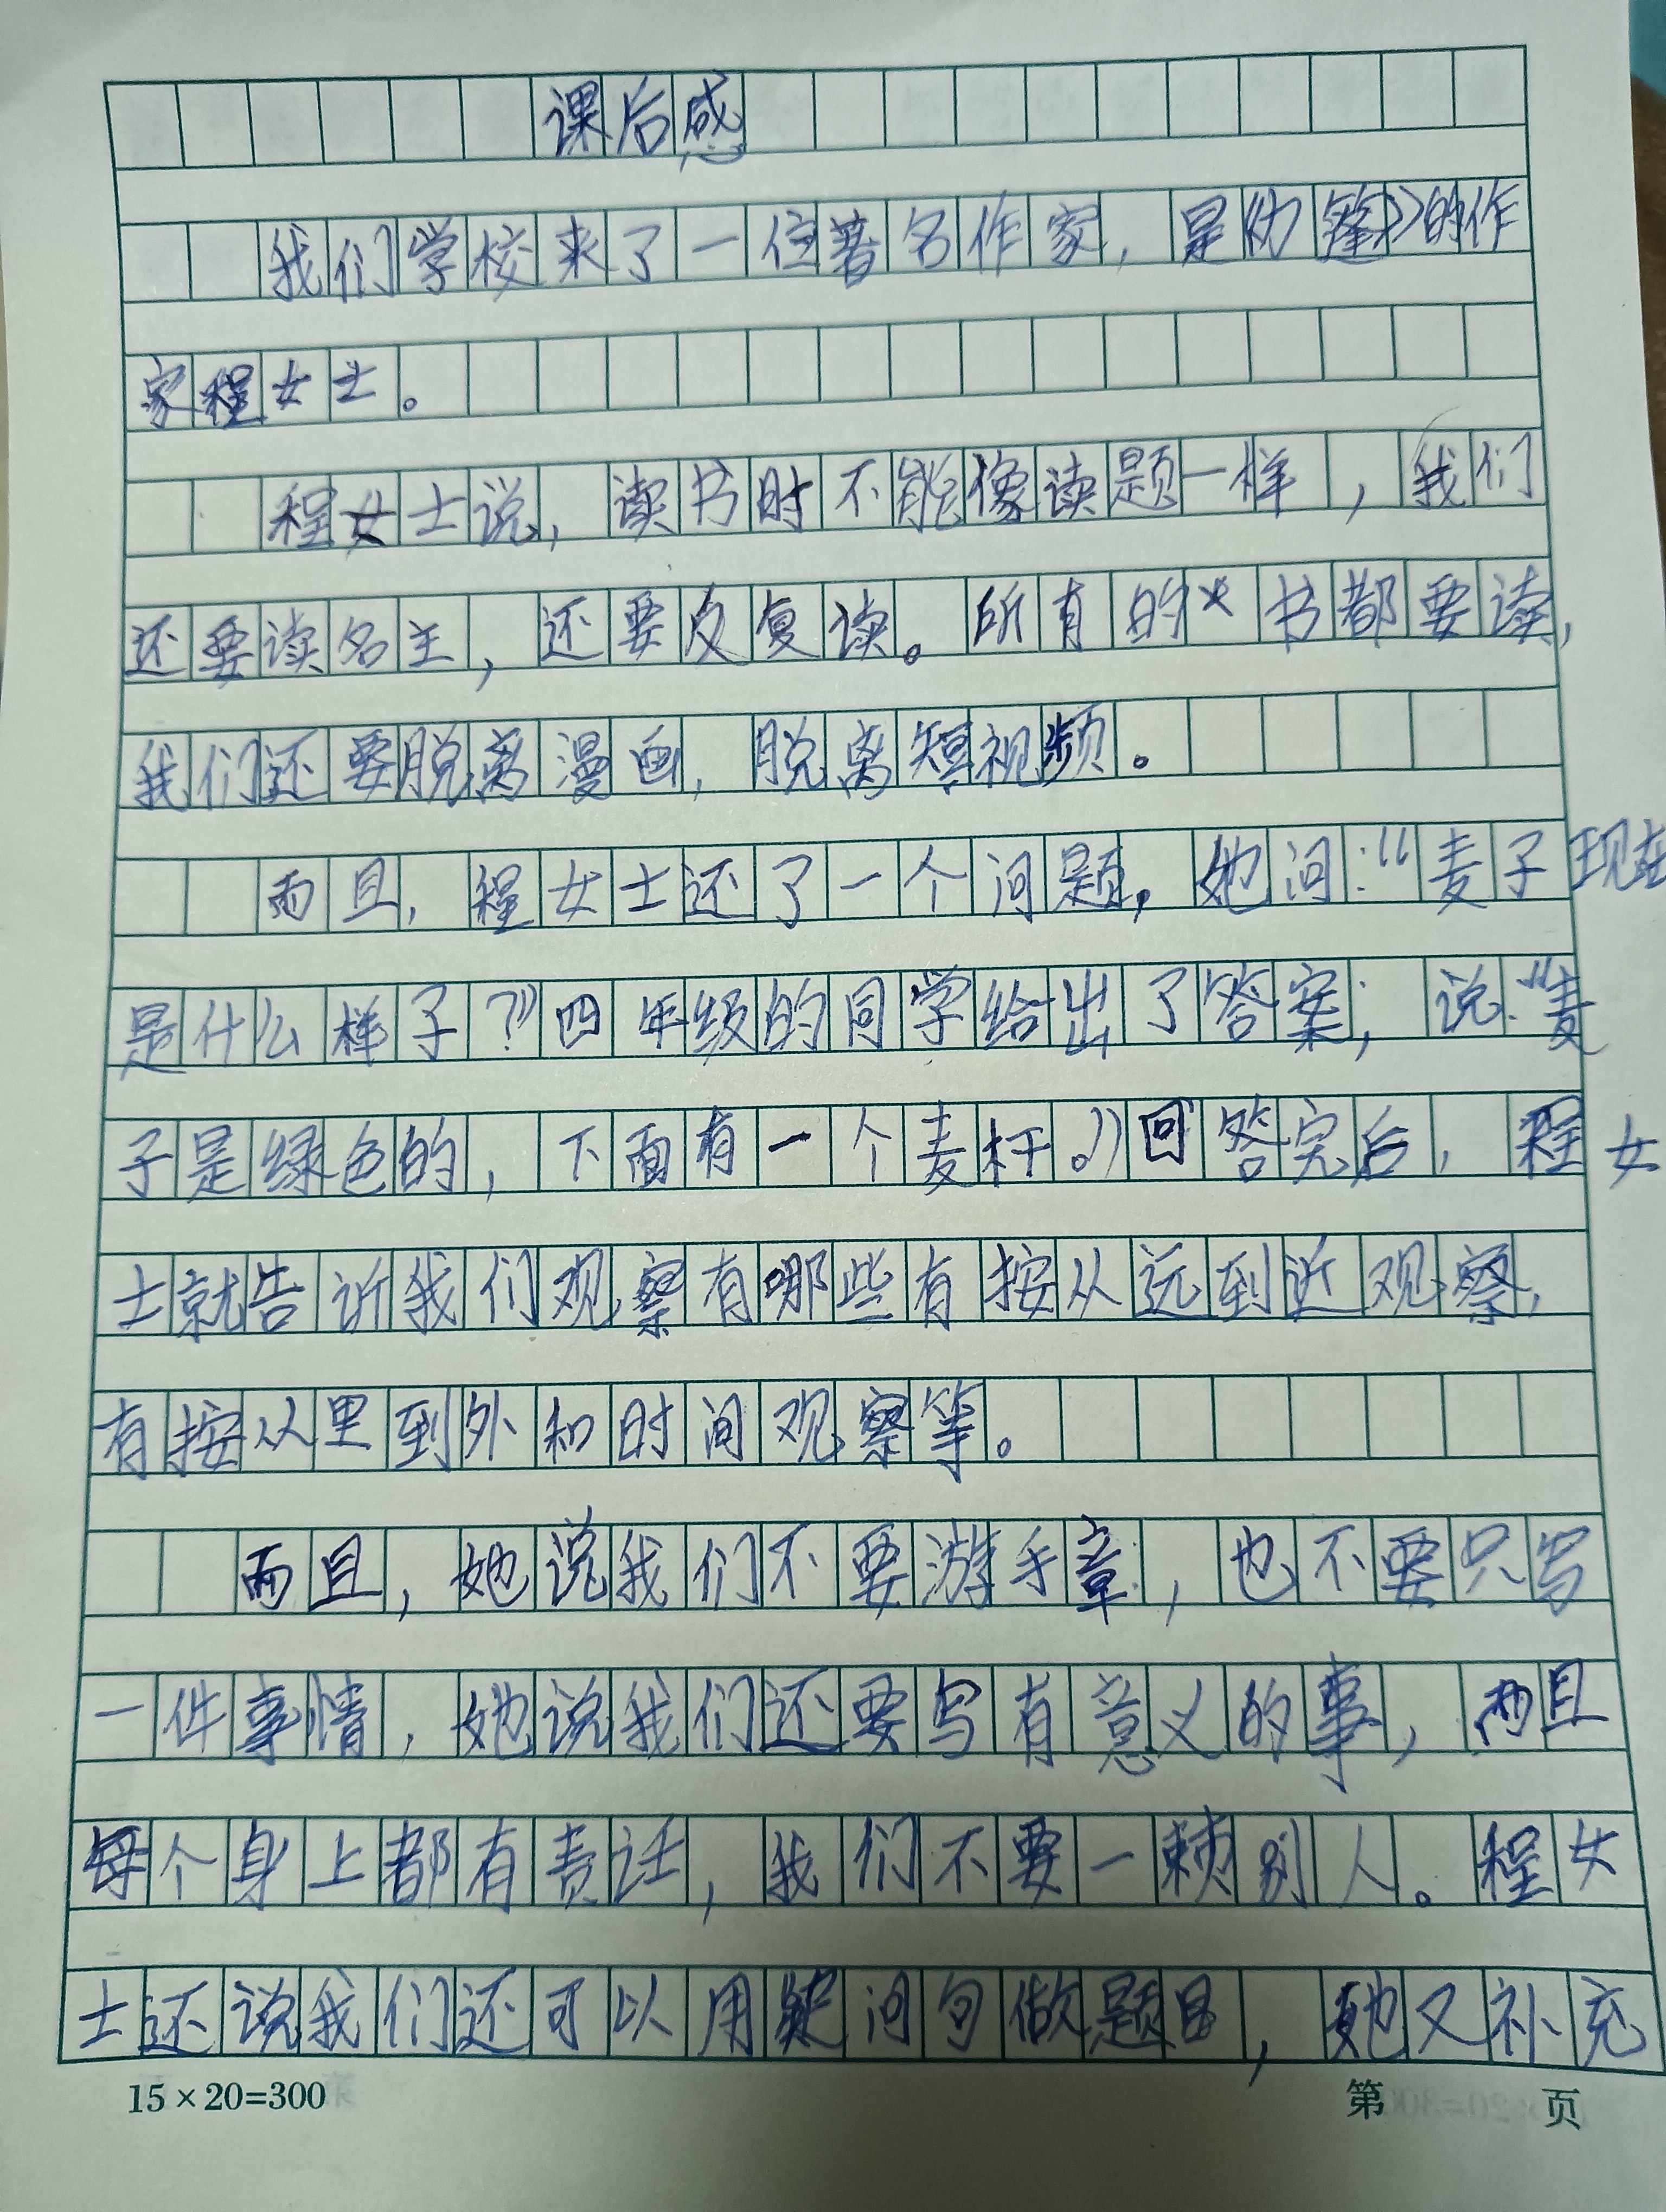 课后感
我们学校来了一位著名作家，是《幼锋》的作
家程女士。
程女士说，读书时不能像读题一样，我们
还要读名主，还要反复读。所有的书都要读，
我们还要脱离漫画，脱离短视频。
而且，程女士还了一个问题，她问：“麦子现在
是什么样子？”四年级的同学给出了答案；说：“麦
子是绿色的，下面有一个麦杆。”回答完后，程女
士就告诉我们观察有哪些有按从远到近观察，
有按从里到外和时间观察等。
而且，她说我们不要游手章，也不要只写
一件事情，她说我们还要写有意义的事，而且
每个身上都有责任，我们不要一赖别人。程女
士还说我们还可以用疑问句做题目，她又补充
15×20=300
第 页